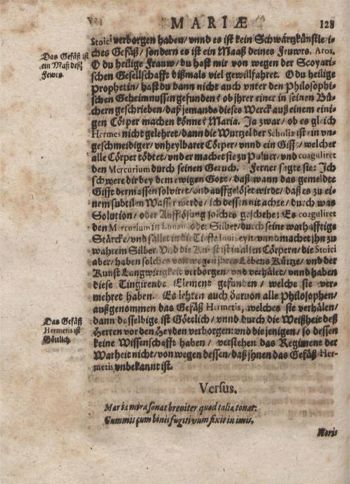 MARIÆ 128
Stoici verborgen haben/ vnnd es ist kein Schwartzkünstle-
isches Gefäß/ sondern es ist ein Maaß deines Feuwrs. Aros.
Das Gefäß ist
ein Maß deß
Fewrs.
O du heilige Frauw/ du hast mir von wegen der
Gesellschafft dißmals viel gewillfahret. O du heilige
Prophetin/ hast du dann nicht auch vnter den Philosophi-
schen Geheimnussen gefunden/ so jhrer einer in seinen Bü-
chern geschrieben/ daß jemandes dieses Werck auß einem eini-
gen Cörper machen könne? Maria. Ja zwar/ ob es gleich
Hermes nicht gelehret/ dann die Wurtzel der Scholis ist ein vn-
geschmeidiger/ vnheylbarer Cörper/ vnnd ein Gifft/ welcher
alle Cörper tödtet/ vnd er machet sie zu Puluer/ vnd coaguliret
den Mercurium durch seinen Geruch. Ferner sagte sie: Ich
schwere dir bey dem ewigen Gott/ daß wann das gemeldte
Gifft dermassen soluirt/ vnd auffgelöset wirdt/ daß es zu ei-
nem subtilen Wasser werde/ ich dessen nit achte/ durch was
Solution, oder Aufflösung solches geschehe: Es coaguliret
den Mercurium in Lunam, oder Silber/ durch seine warhafftige
Stärcke/ vnd fället in die vnnd machet jhn zu
wahrem Silber. Vnd die Kunst ist in allen Cörpern/ die Stoici
aber/ haben solches von wegen jhres Lebens Kürtze/ vnd der
Kunst Langwirigkeit verborgen/ vnd verhälet/ vnnd haben
diese Tingirende Element gefunden/ welche sie ver-
mehret haben. Es lehren auch darvon alle Philosophen/
außgenommen das Gefäß Hermetis, welches sie verhälen/
Das Gefäß
Hermetis ist
Göttlich.
dann dasselbige ist Göttlich/ vnnd durch die Weißheit deß
Herren vor den Heyden verborgen: vnd die jenigen/ so dessen
keine Wissenschafft haben/ verstehen das Regiment der
Warheit nicht/ von wegen dessen/ daß jhnen das Gefäß Her-
metis vnbekannt ist.
Versus.
Maria mira sonat breviter quod talia tonat:
Gummis cum binis fugitivum fixit in imis,
Horis